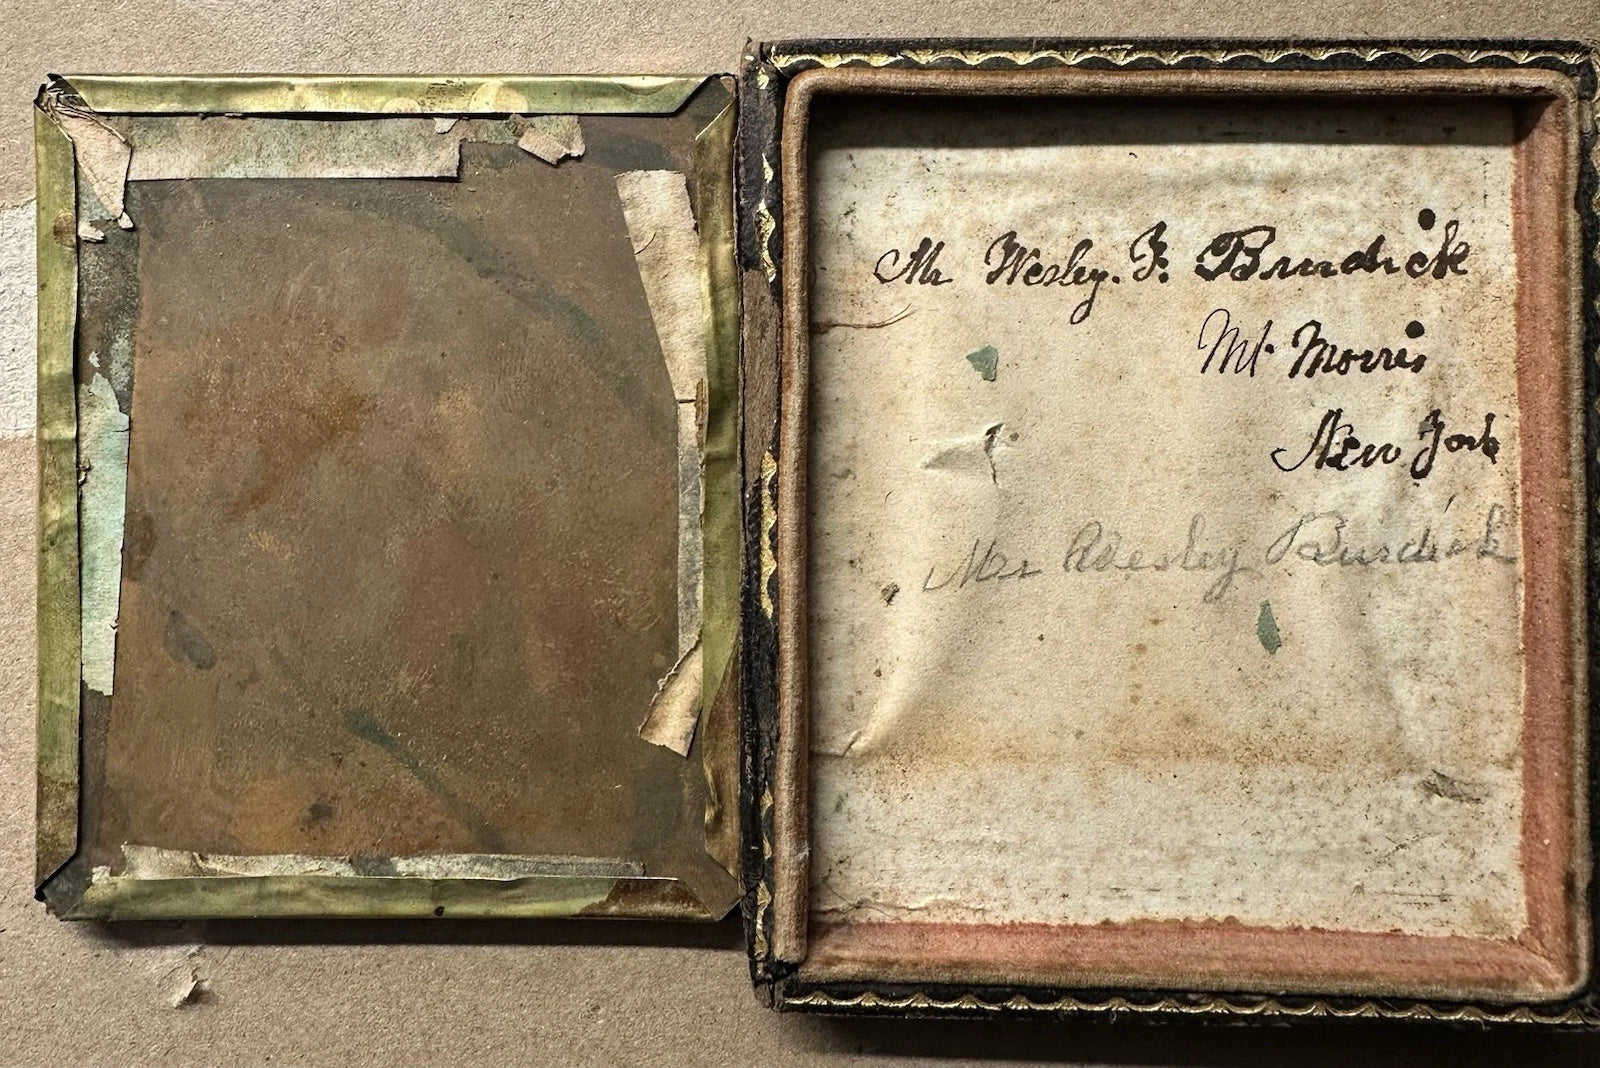 Mr Wesley. F. Burdick
Mt. Morris
New York
Mr Wesley Burdick